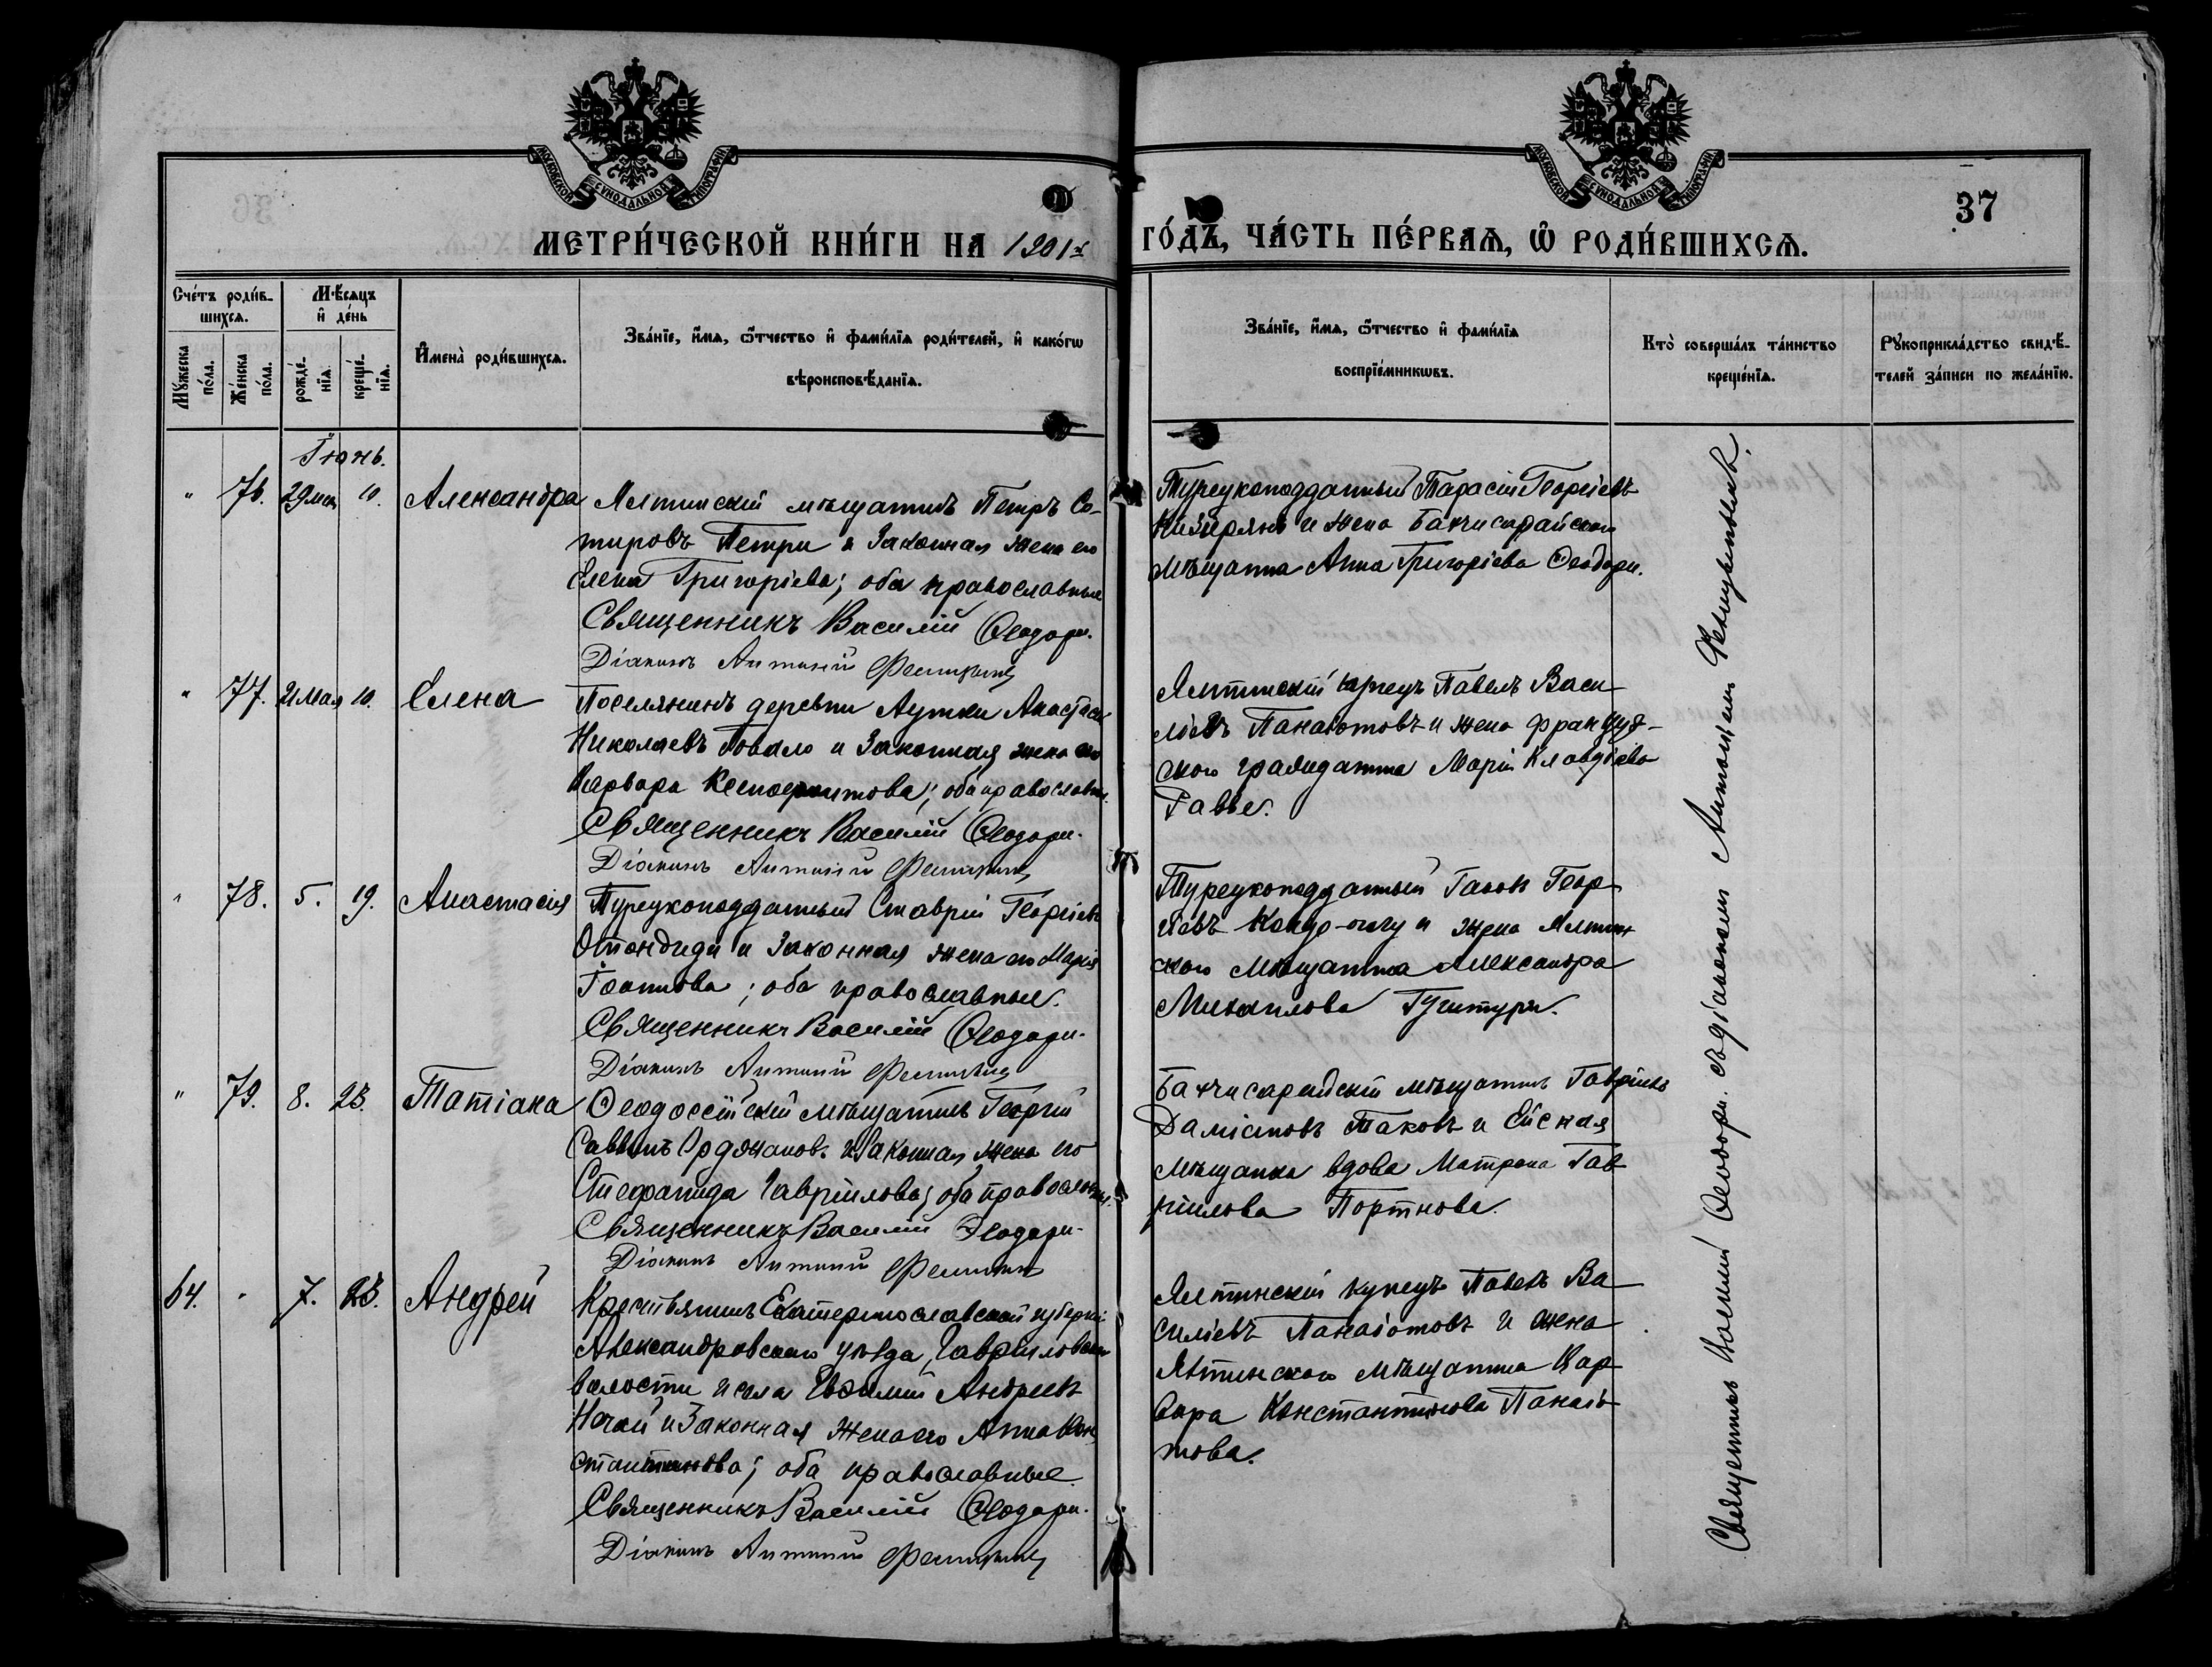 МОСКОВСКОЙ СѴНОДАЛЬНОЙ ТИПОГРАФІИ
МОСКОВСКОЙ СѴНОДАЛЬНОЙ ТИПОГРАФІИ
37
МЕТРИ́ЧЕСКОЙ КНИ́ГИ НА 1901й ГО́ДЪ, ЧА́СТЬ ПЕ́РВАѦ, Ѡ҆ РОДИ́ВШИХСѦ.
Сче́тъ роди́в-
шихсѧ.
Мѣ́сѧцъ
и҆ де́нь
Мꙋ́жеска
по́ла.
Же́нска
по́ла.
рожде́-
нїѧ.
креще́-
нїѧ.
И҆мена̀ роди́вшихсѧ.
Зва́нїе, и҆́мѧ, ѻ҆́тчество и҆ фами́лїѧ роди́телей, и҆ како́гѡ
вѣроисповѣ́данїѧ.
Зва́нїе, и҆́мѧ, ѻ҆́тчество и҆ фами́лїѧ
воспрїе́мникѡвъ.
Кто̀ соверша́лъ та́инство
креще́нїѧ.
Рꙋкоприкла́дство свидѣ́-
телей за́писи по жела́нїю.
Іюнь.
" 76. 29 мая 10. Александра
Ялтинскій мѣщанинъ Петръ Со-
тировъ Петри и законная жена его
Елена Григоріева; оба православные
Священникъ Василій Ѳеодори.
Діаконъ Антоній
Турецкоподданный Тарасій Георгіевъ
и жена Бахчисарайского
мѣщанина Анна Григоріева Ѳеодори.
" 77. 21 мая 10. Елена
Поселянинъ деревни Аутки Анастасій
Николаевъ и законная жена его
Варвара; оба православные
Священникъ Василій Ѳеодори.
Діаконъ Антоній
Ялтинскій купецъ Павелъ Васи-
ліевъ Панаіотовъ и жена француз-
ского гражданина Марія Клавдіева
Гавве.
" 78. 5. 19. Анастасія
Турецкоподданный Ставрій Георгіевъ
и законная жена его Марія
Іоаннова; оба православные.
Священникъ Василій Ѳеодори.
Діаконъ Антоній
Турецкоподданный Геор-
гіевъ и жена Ялтин-
ского мѣщанина Александра
Михаилова
" 79. 8. 23. Татіана
Ѳеодосійскій мѣщанинъ Георгій
Саввинъ и законная жена его
Стефанида Гавріилова; оба православные.
Священникъ Василій Ѳеодори.
Діаконъ Антоній
Бахчисарайскій мѣщанинъ Гавріилъ
Даміановъ Таковъ и Ейская
мѣщанка вдова Матрона Гав-
ріилова Портнова.
64. " 7. 23. Андрей
Крестьянинъ Екатеринославской губерніи
Александровского уѣзда, Гавриловской
волости и села Евѳимій Андреевъ
Ночай и законная жена его Анна Кон-
стантинова; оба православные
Священникъ Василій Ѳеодори.
Діаконъ Антоній
Ялтинскій купецъ Павелъ Ва-
силіевъ Панаіотовъ и жена
Ялтинского мѣщанина Вар-
вара Константинова Панаіо-
това.
Священникъ Василій Ѳеодори. съ діакономъ Антоніемъ